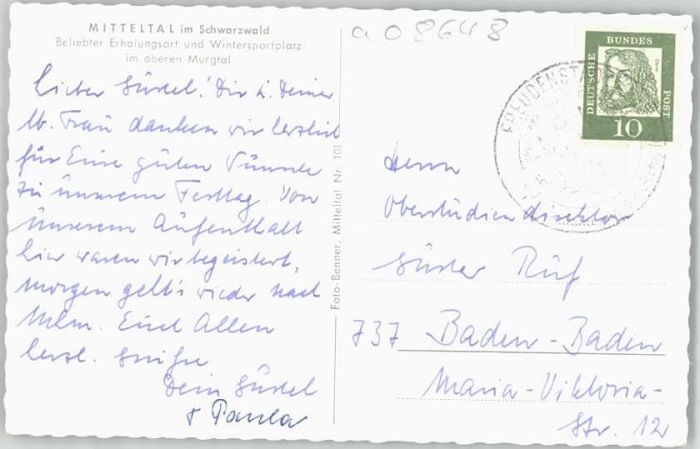 MITTELTAL im Schwarzwald
Beliebter Erholungsort und Wintersportplatz
im oberen Murgtal
a 08648
DEUTSCHE BUNDES POST
10
FREUDENSTADT
Lieber Gustel! Dir u. Deiner
lb. Frau danken wir herzlich
für Eure guten Wünsche
zu unserem Festtag. Von
unserem Aufenthalt
hier waren wir begeistert,
morgen geht's wieder nach
Mhm. Euch Allen
herzl. Grüße
Dein Gustel
+ Paula
Foto-Benner, Mitteltal Nr. 101
Herrn
Oberstudiendirektor
Ruf
737 Baden-Baden
Maria-Viktoria-
Str. 12